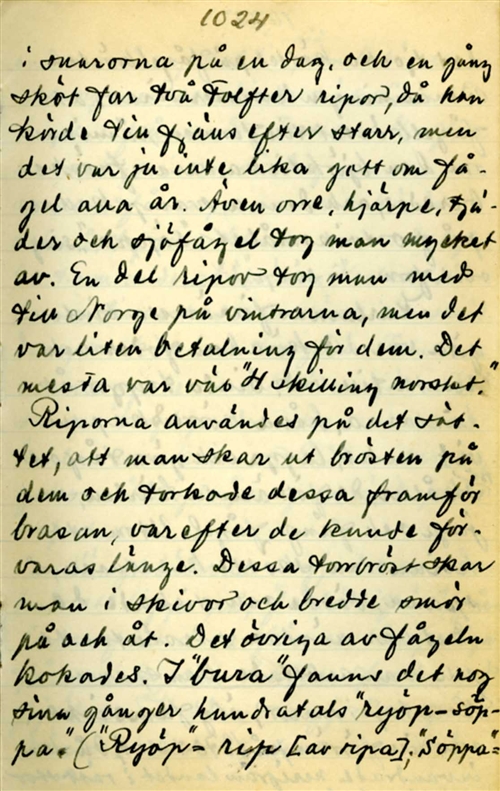 1024
i snarorna på en dag, och en gång
sköt far två tolfter ripor, då han
körde till fjäns efter starr, men
det var ju inte lika gott om få-
gel alla år. Även orre, hjärpe, tjä-
der och sjöfågel tog man mycket
av. En del ripor tog man med
till Norge på vintrarna, men det
var liten betalning för dem. Det
mesta var väs "4 skilling norskt."
Riporna användes på det sät-
tet, att man skar ut brösten på
dem och torkade dessa framför
brasan, varefter de kunde för-
varas länge. Dessa torrbröst skar
man i skivor och bredde smör
på och åt. Det övriga av fågeln
kokades. I "bura" fanns det nog
sina gånger hundratals "ryöp-söp-
pa." ("Ryöp" = rip [av ripa]; "Söppa" =